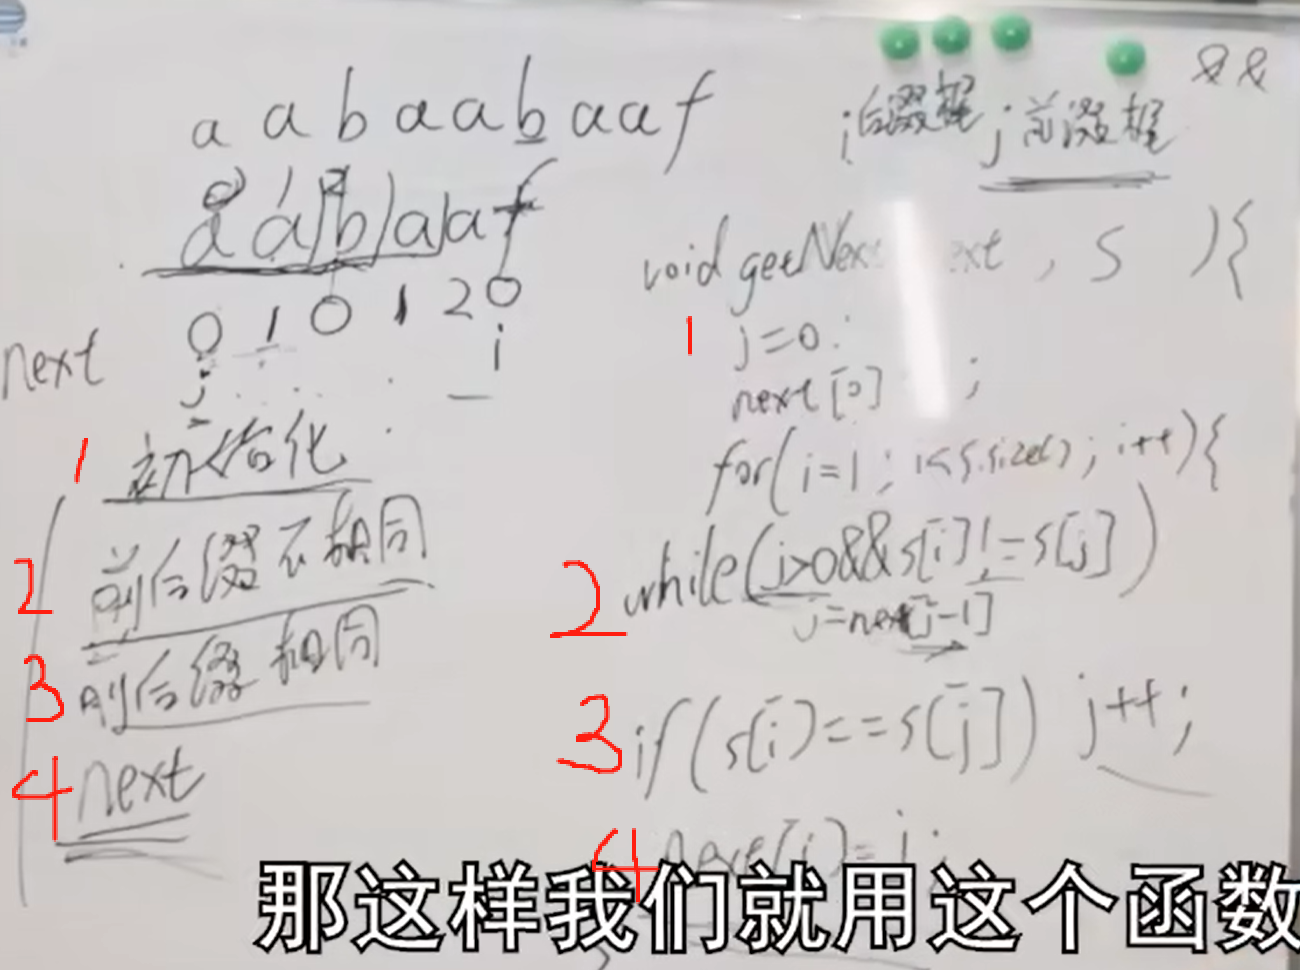 &&
i后缀末 j前缀末
a a b a a b a a f
a a b a a f
next 0 1 0 1 2 0
j i
1 初始化
2 前后缀不相同
3 前后缀相同
4 next
void getNext(next, s ){
1 j=0;
next[0] ;
for(i=1; i<s.size(); i++){
2 while(j>0&&s[i]!=s[j])
j=next[j-1]
3 if(s[i]==s[j]) j++;
4 next[i]=j;
那这样我们就用这个函数